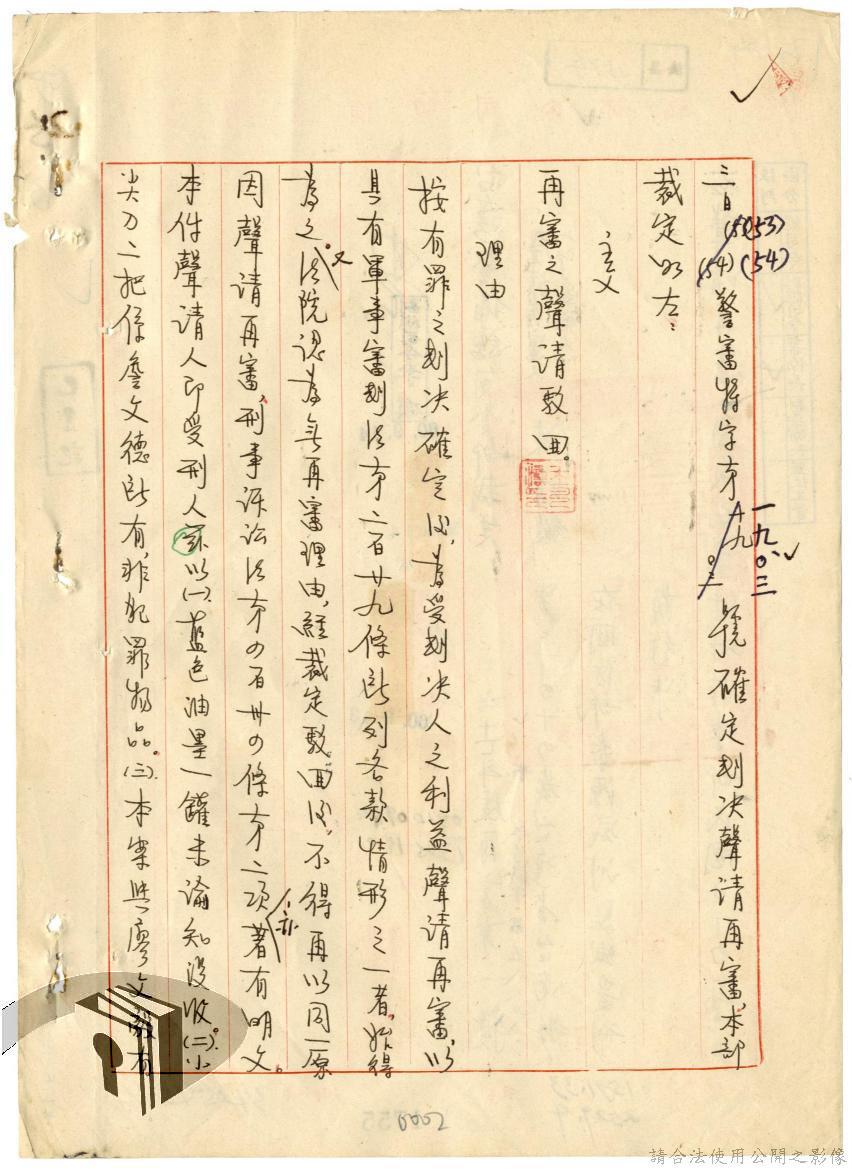 三日(53)(54)警審特字第一九〇三號確定判決聲請再審，本部
裁定如左：
主文
再審之聲請駁回。
理由
按有罪之判決確定後，為受判決人之利益聲請再審，以
具有軍事審判法第二百廿九條所列各款情形之一者，始得
為之。又法院認為無再審理由，經裁定駁回後，不得再以同一原
因聲請再審，刑事訴訟法第四百卅四條第二項亦著有明文。
本件聲請人即受刑人茲以(一)藍色油墨一罐未諭知沒收。(二)小
尖刀二把係詹文德所有，非犯罪物品。(三)本案與廖文毅有
0002
請合法使用公開之影像